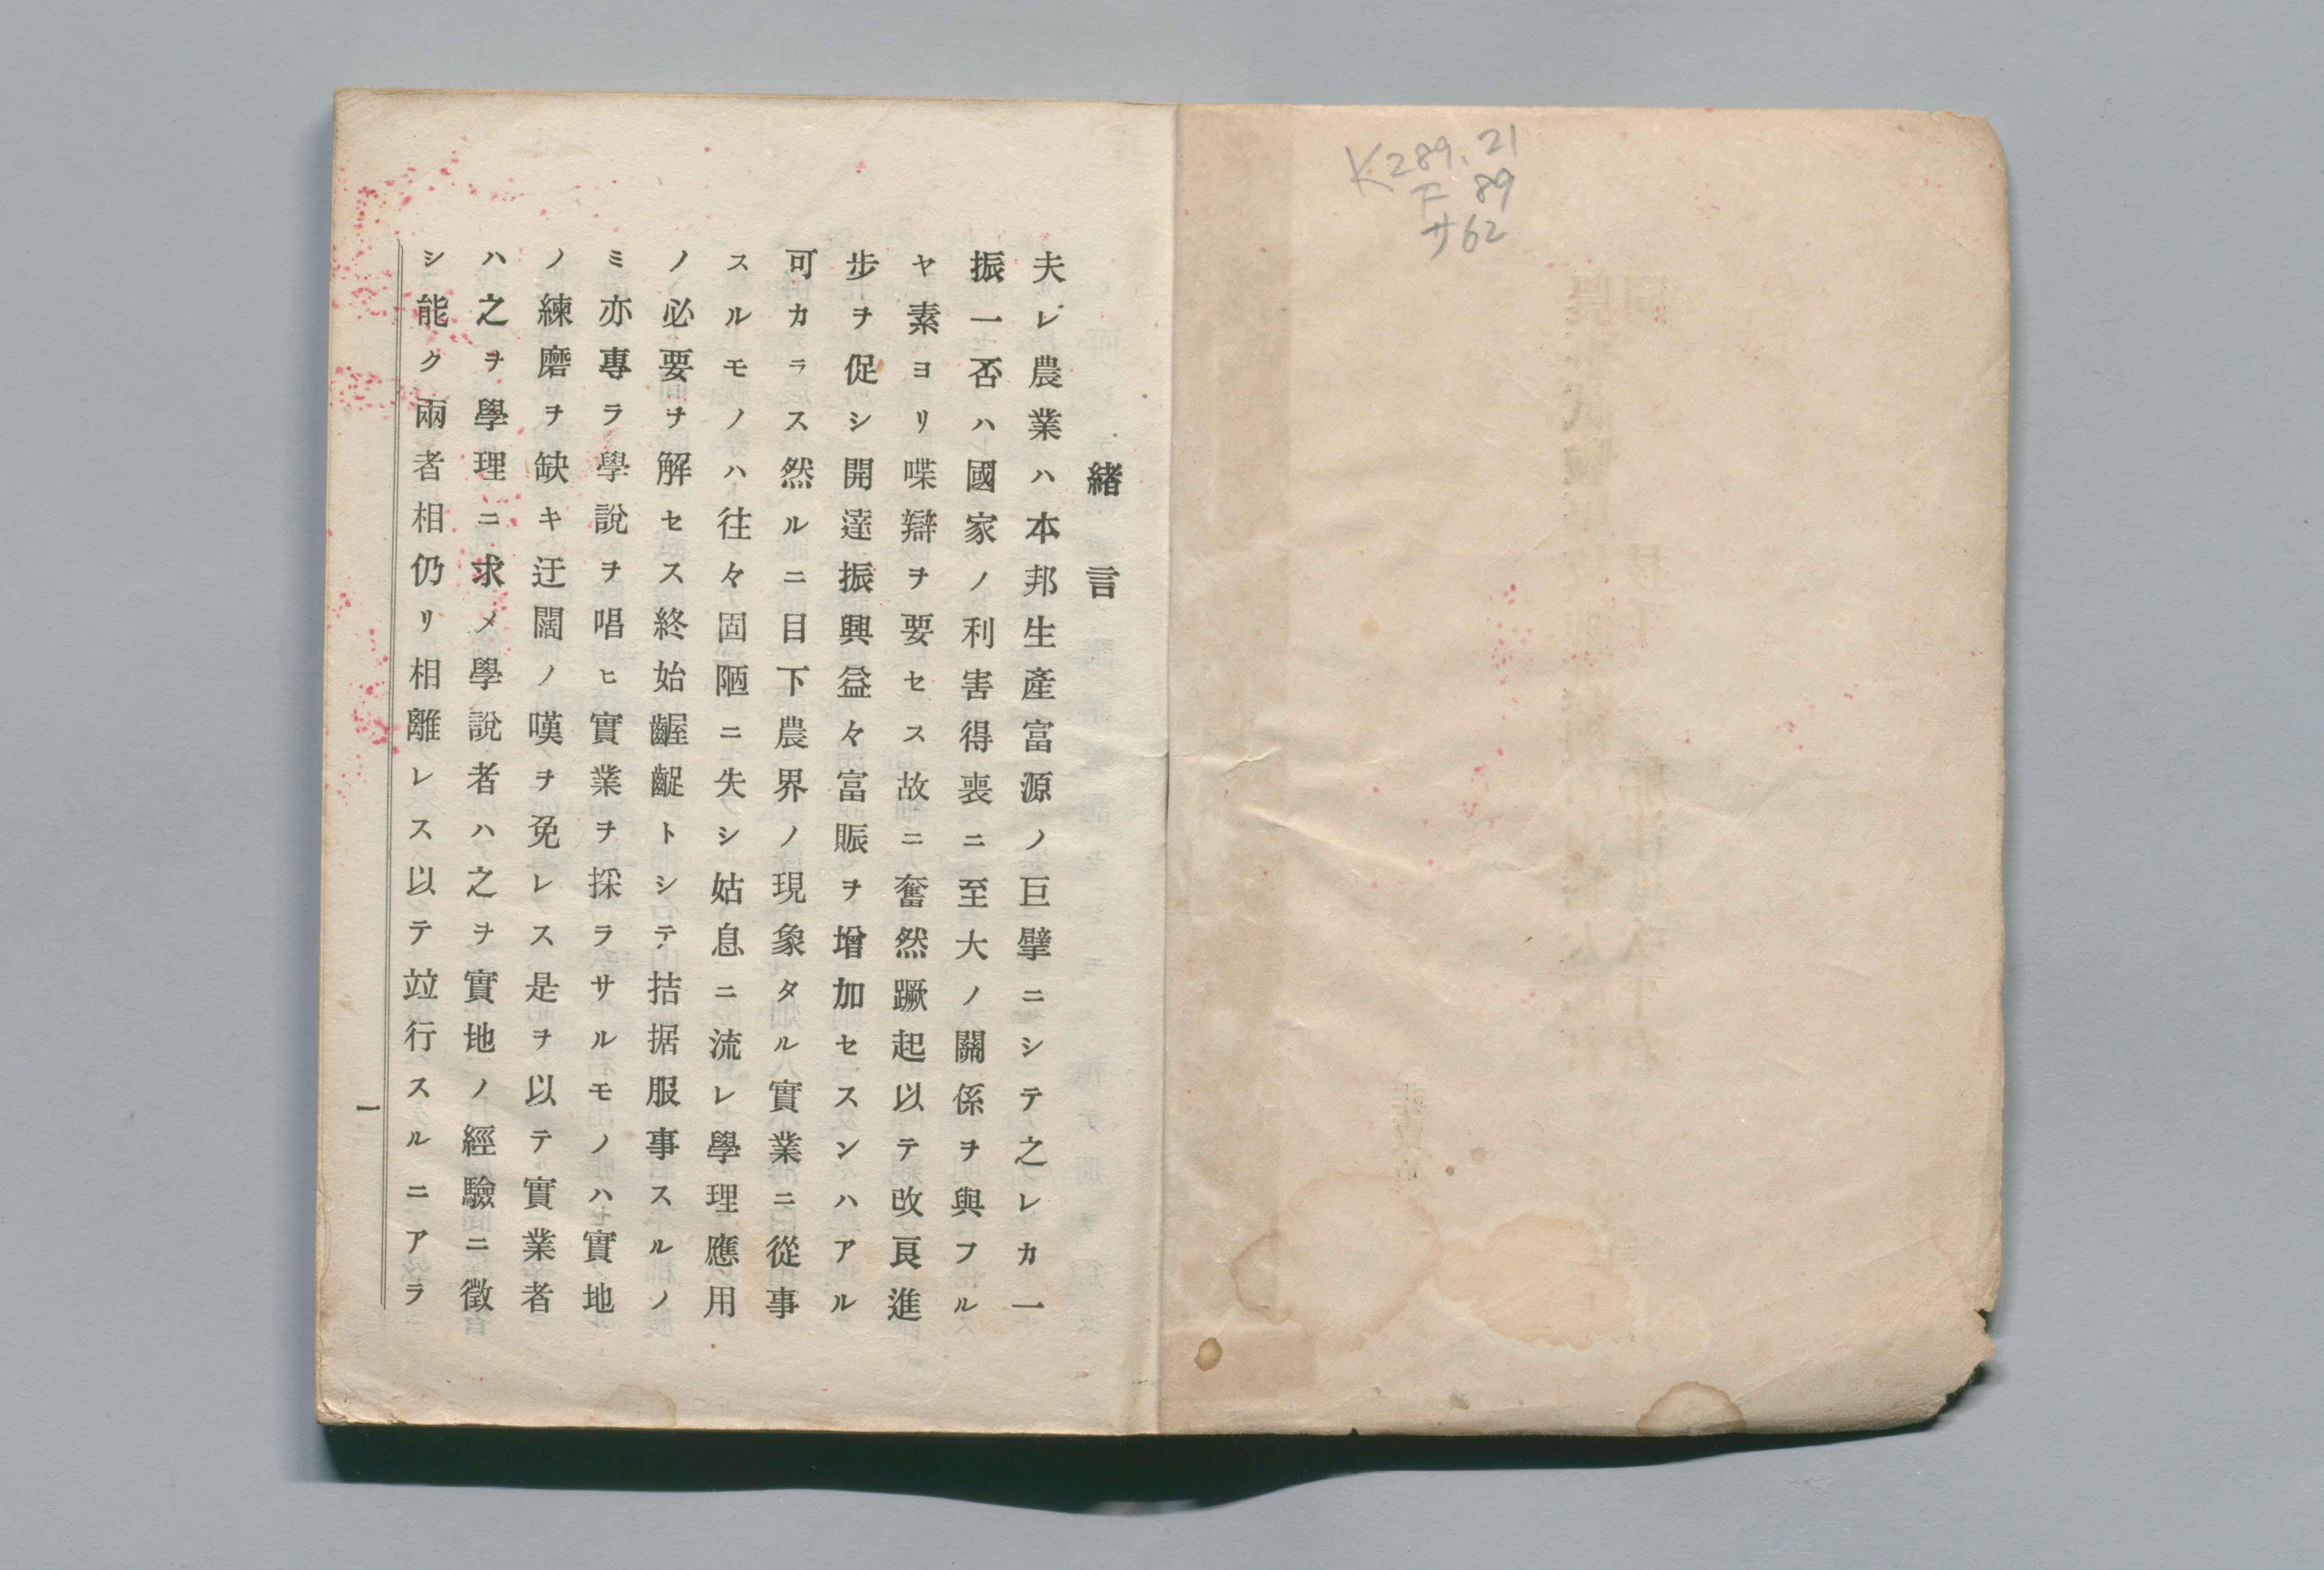 K289.21
F 89
サ62
緒言
夫レ農業ハ本邦生產富源ノ巨擘ニシテ之レカ一
振一否ハ國家ノ利害得喪ニ至大ノ關係ヲ與フル
ヤ素ヨリ喋辯ヲ要セス故ニ奮然蹶起以テ改良進
步ヲ促シ開達振興益々富賑ヲ增加セスンハアル
可カラス然ルニ目下農界ノ現象タル實業ニ從事
スルモノハ往々固陋ニ失シ姑息ニ流レ學理應用
ノ必要ヲ解セス終始齷齪トシテ拮据服事スルノ
ミ亦專ラ學說ヲ唱ヒ實業ヲ採ラサルモノハ實地
ノ練磨ヲ缺キ迂闊ノ嘆ヲ免レス是ヲ以テ實業者
ハ之ヲ學理ニ求メ學說者ハ之ヲ實地ノ經驗ニ徵
シ能ク兩者相仍リ相離レス以テ竝行スルニアラ
一